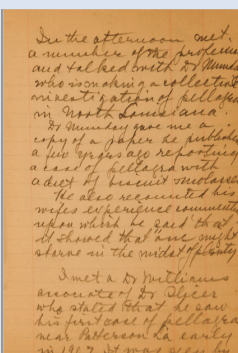 In the afternoon met
a number of the profession
and talked with Dr Munday
who is making a collective
investigation of pellagra
in North Louisiana.
Dr Munday gave me a
copy of a paper he published
a few years ago reporting
a case of pellagra with
a diet of biscuit molasses
He also recounted his
wifes experience commenting
upon which he said that
it showed that one might
starve in the midst of plenty
I met a Dr Williams
of Dr
who stated that he saw
his first case of pellagra
near Patterson La early
in 1907 It was seen by